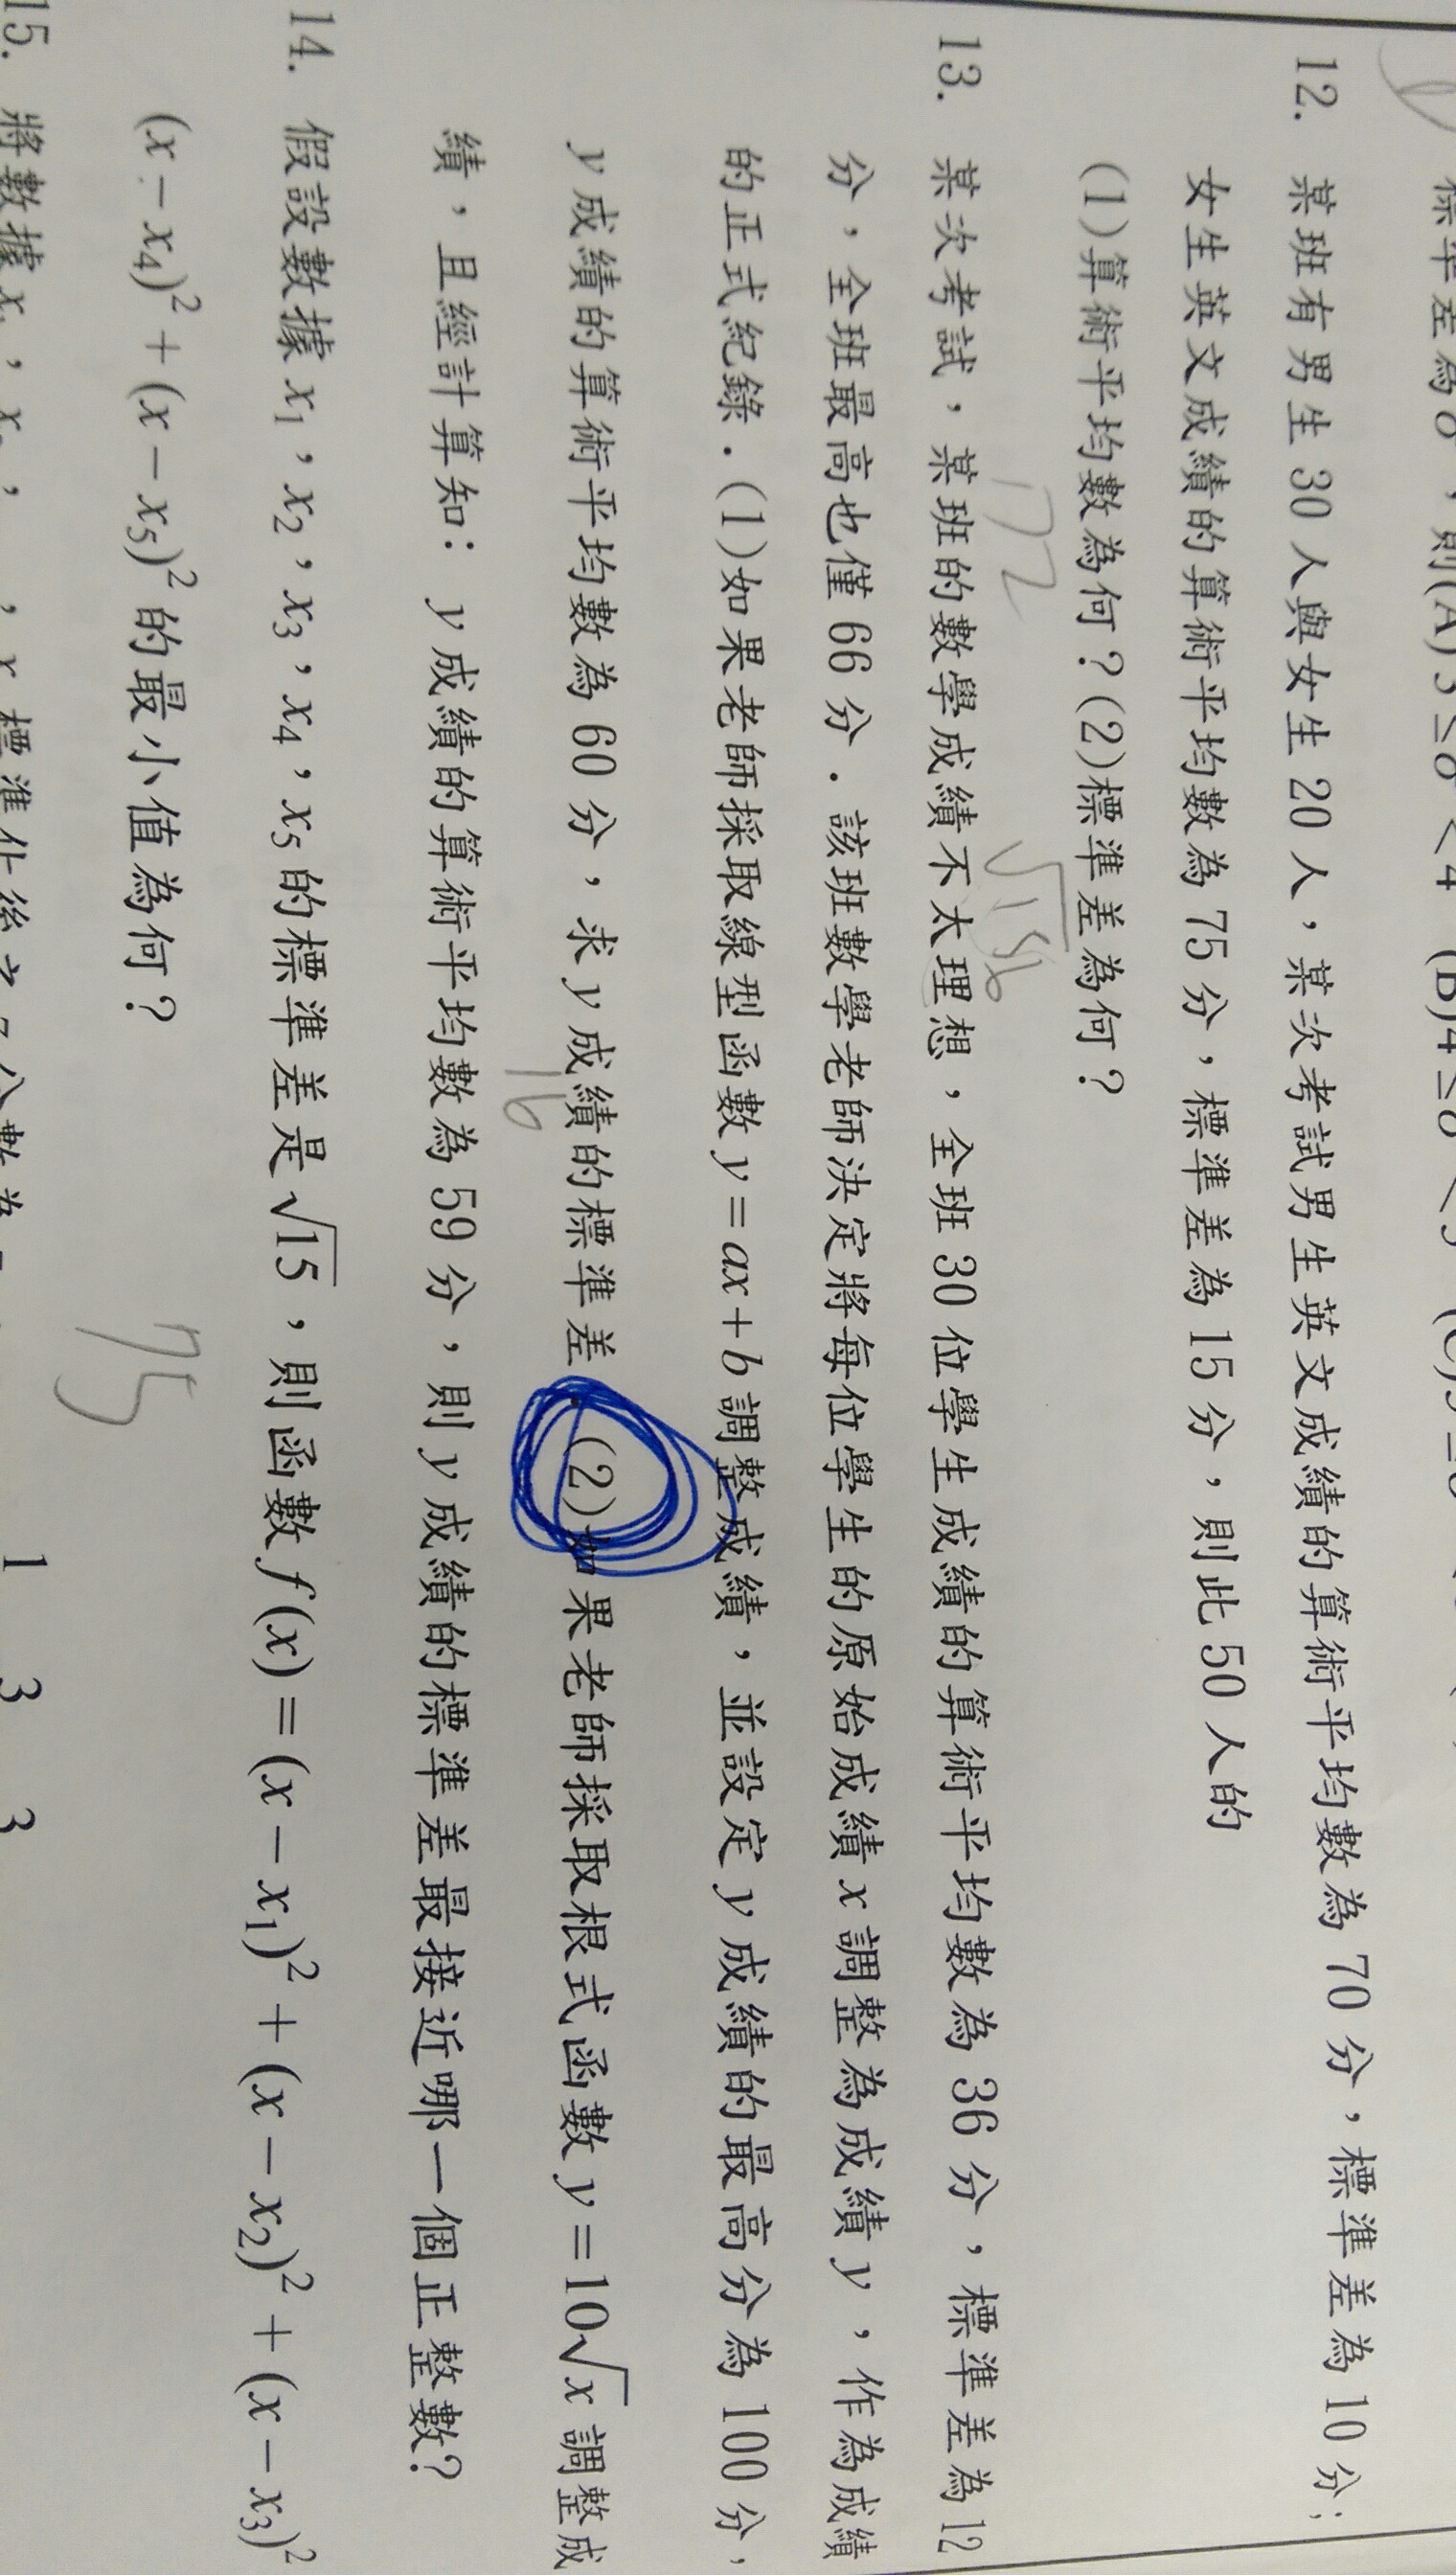 標準差為σ，則(A)3≤σ<4 (B)4≤σ<5
12. 某班有男生 30 人與女生 20 人，某次考試男生英文成績的算術平均數為 70 分，標準差為 10 分；
女生英文成績的算術平均數為 75 分，標準差為 15 分，則此 50 人的
(1)算術平均數為何？(2)標準差為何？
172
√156
13. 某次考試，某班的數學成績不太理想，全班 30 位學生成績的算術平均數為 36 分，標準差為 12
分，全班最高也僅 66 分．該班數學老師決定將每位學生的原始成績 x 調整為成績 y，作為成績
的正式紀錄．(1)如果老師採取線型函數 y=ax+b 調整成績，並設定 y 成績的最高分為 100 分，
y 成績的算術平均數為 60 分，求 y 成績的標準差．(2)如果老師採取根式函數 y=10√x 調整成
16
績，且經計算知：y 成績的算術平均數為 59 分，則 y 成績的標準差最接近哪一個正整數？
14. 假設數據 x₁，x₂，x₃，x₄，x₅ 的標準差是√15，則函數 f(x)=(x−x₁)²+(x−x₂)²+(x−x₃)²
(x−x₄)²+(x−x₅)² 的最小值為何？
75
15. 將數據 x₁，x₂，